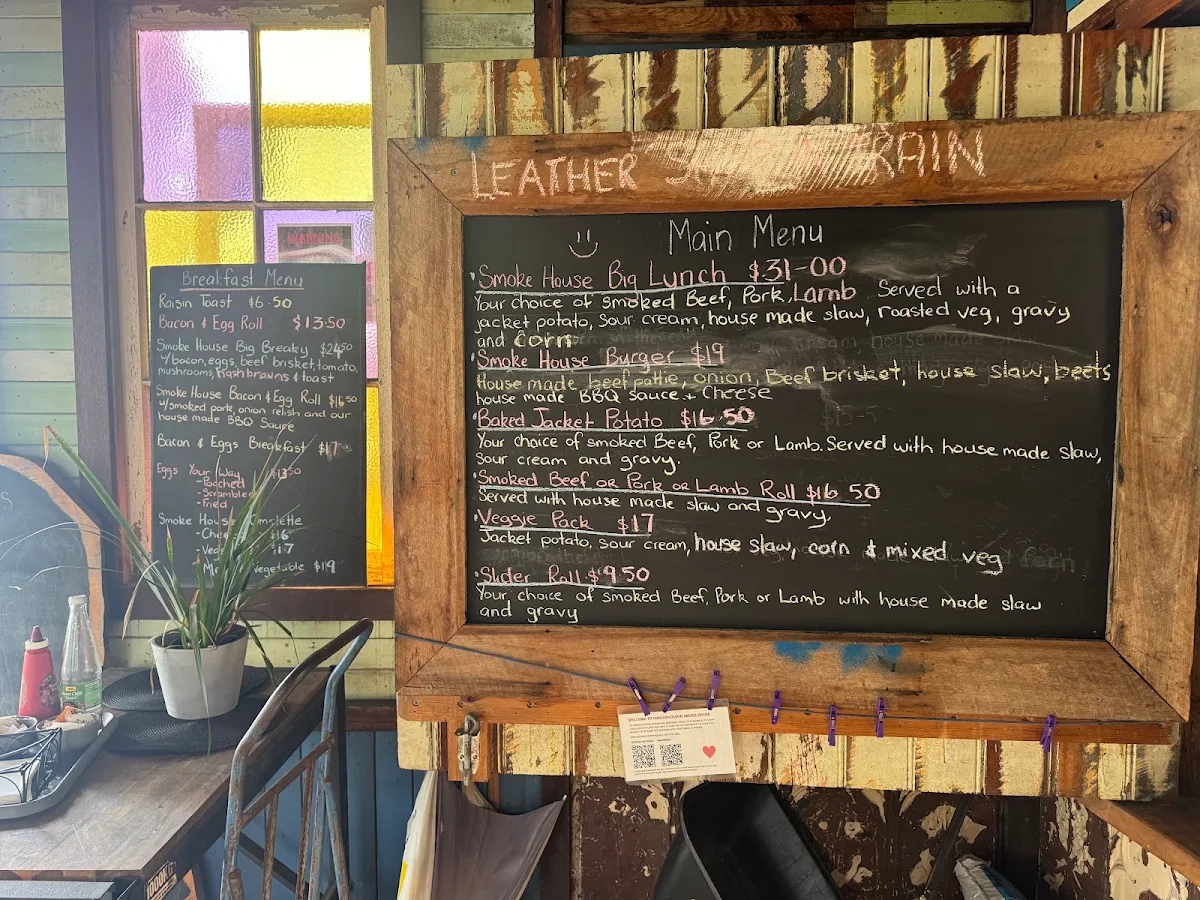 LEATHER S TRAIN
Main Menu
Smoke House Big Lunch $31-00
Your choice of smoked Beef, Pork, Lamb Served with a
jacket potato, sour cream, house made slaw, roasted veg, gravy
and corn
Smoke House Burger $19
House made beef pattie, onion, Beef brisket, house slaw, beets
house made BBQ sauce + Cheese
Baked Jacket Potato $16.50
Your choice of smoked Beef, Pork or Lamb. Served with house made slaw,
Sour cream and gravy.
Smoked Beef or Pork or Lamb Roll $16 50
Served with house made slaw and gravy,
Veggie Pack $17
Jacket potato, sour cream, house slaw, corn & mixed veg
Slider Roll $9.50
Your choice of smoked Beef, Pork or Lamb with house made slaw
and gravy
WARNING
Breakfast Menu
Raisin Toast $6.50
Bacon & Egg Roll $13.50
Smoke House Big Breaky $24.50
w/bacon, eggs, beef brisket, tomato,
mushrooms, hashbrowns & toast
Smoke House Bacon & Egg Roll $16.50
w/smoked pork, onion relish and our
house made BBQ Sauce
Bacon & Eggs Breakfast $17
Eggs Your Way $13.50
- Poached
- Scrambled
- Fried
Smoke House Omelette
$16
$17
Vegetable $19